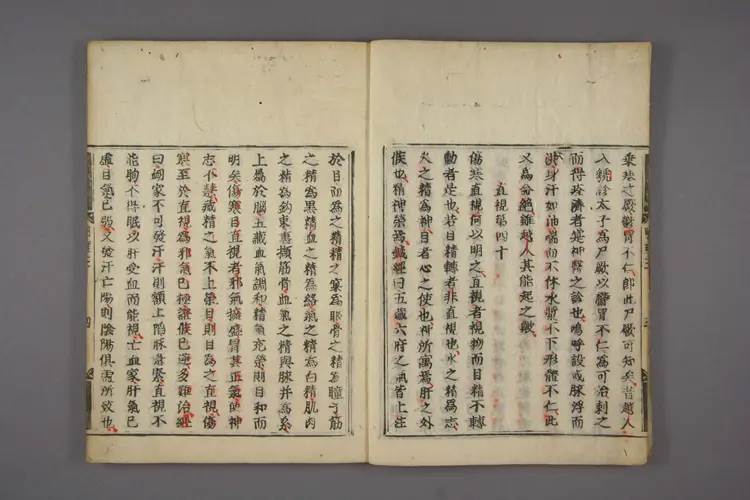 乗珠之厥欝冒不仁即此尸厥可知矣昔越人
入虢診太子為尸厥以欝冒不仁為可治刺之
而得痊濟者是神醫之診也嗚呼設或脉浮而
洪身汗如油喘而不休水漿不下形體不仁此
又為命絶雖越人其能起之歟
直視第四十
傷寒直視何以明之直視者視物而目精不轉
動者是也若目精轉者非直視也水之精為志
火之精為神目者心之使也神所寓焉肝之外
候也精神榮焉鍼經曰五藏六府之氣皆上注
於目而為之精精之窠為眼骨之精為瞳子筋
之精為黒精血之精為絡氣之精為白精肌肉
之精為約束裹擷筋骨血氣之精與脉并為系
上屬於腦五藏血氣調和精氣充榮則目和而
明矣傷寒目直視者邪氣擁盛冒其正氣使神
志不慧藏精之氣不上榮於目則目為之直視傷
寒至於直視為邪氣已極證候已逆多難治經
曰衂家不可發汗汗則額上陷脉急緊直視不
能眴不得眠以肝受血而能視亡血家肝氣已
虚目氣已弱又發汗亡陽則陰陽俱虚所致也